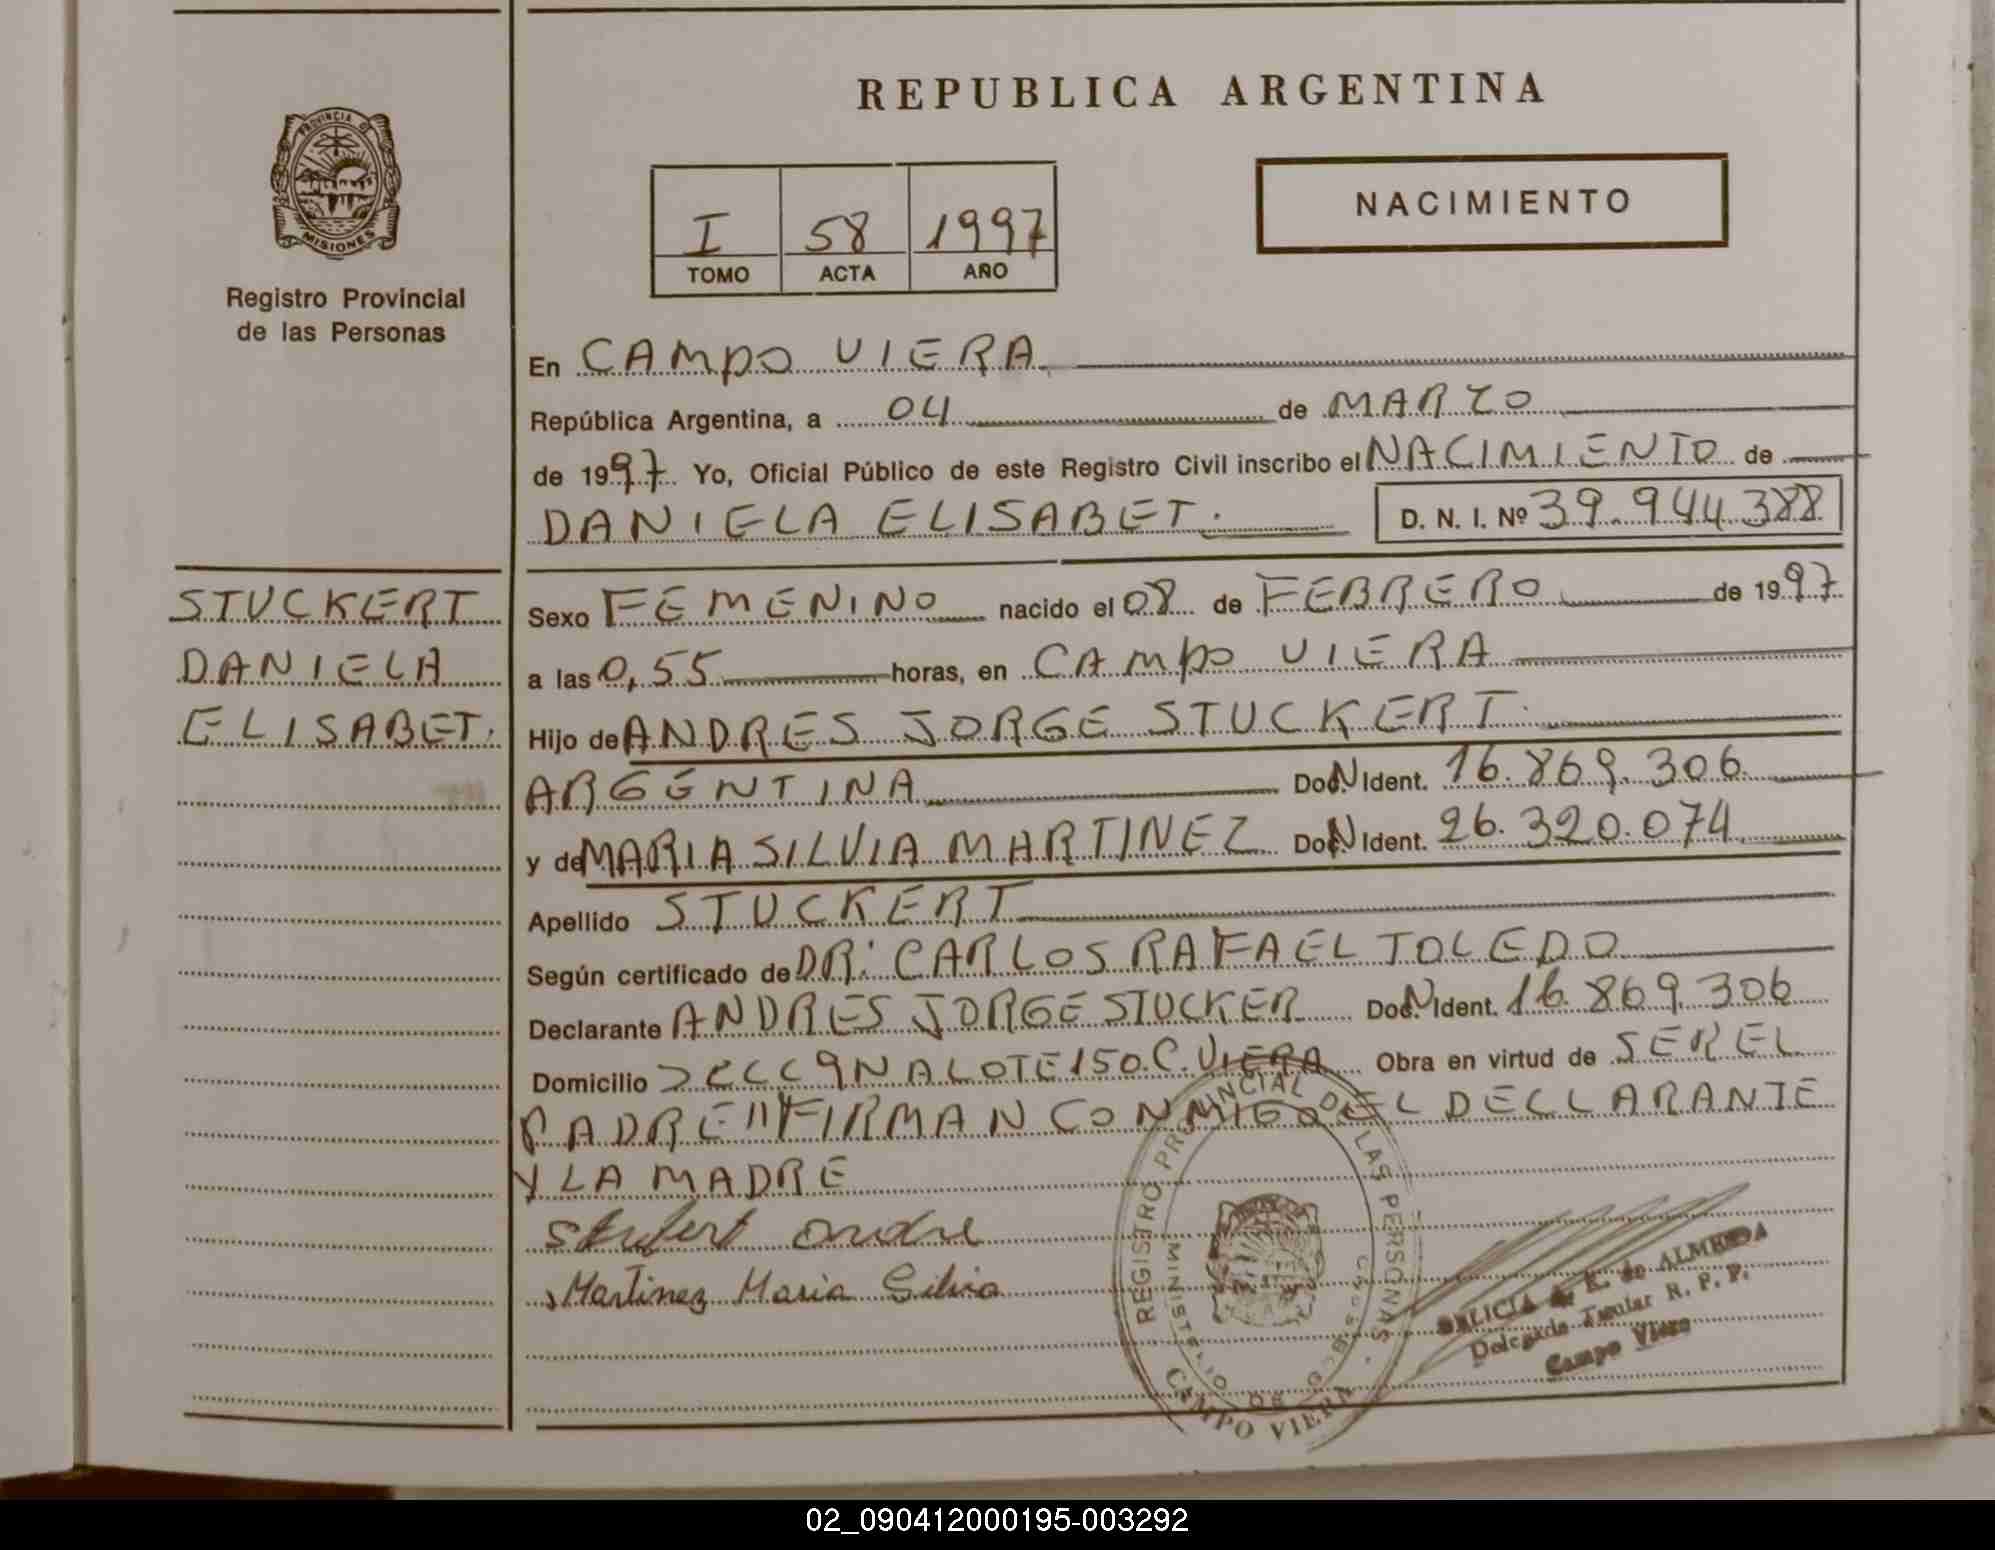 PROVINCIA DE
MISIONES
Registro Provincial
de las Personas
REPUBLICA ARGENTINA
NACIMIENTO
I 58 1997
TOMO ACTA AÑO
En CAMPO VIERA
República Argentina, a 04 de MARZO
de 1997. Yo, Oficial Público de este Registro Civil inscribo el NACIMIENTO de
DANIELA ELISABET. D. N. I. Nº 39.944.388
STUCKERT
DANIELA
ELISABET.
Sexo FEMENINO nacido el 08 de FEBRERO de 1997
a las 0,55 horas, en CAMPO VIERA
Hijo de ANDRES JORGE STUCKERT.
ARGENTINA Doc. N Ident. 16.869.306
y de MARIA SILVIA MARTINEZ Doc. N Ident. 26.320.074
Apellido STUCKERT
Según certificado de DR: CARLOS RAFAEL TOLEDO
Declarante ANDRES JORGE STUCKER Doc. N Ident. 16.869.306
Domicilio LOTE 150.C.VIERA Obra en virtud de SER EL
PADRE"FIRMAN CONMIGO EL DECLARANTE
Y LA MADRE
Martinez Maria Silvia
REGISTRO PROVINCIAL DE LAS PERSONAS.
MINISTERIO DE GOB
CAMPO VIERA
DELICIA de ALMEIDA
Delegada Titular R. P. P.
Campo Viera
02_090412000195-003292